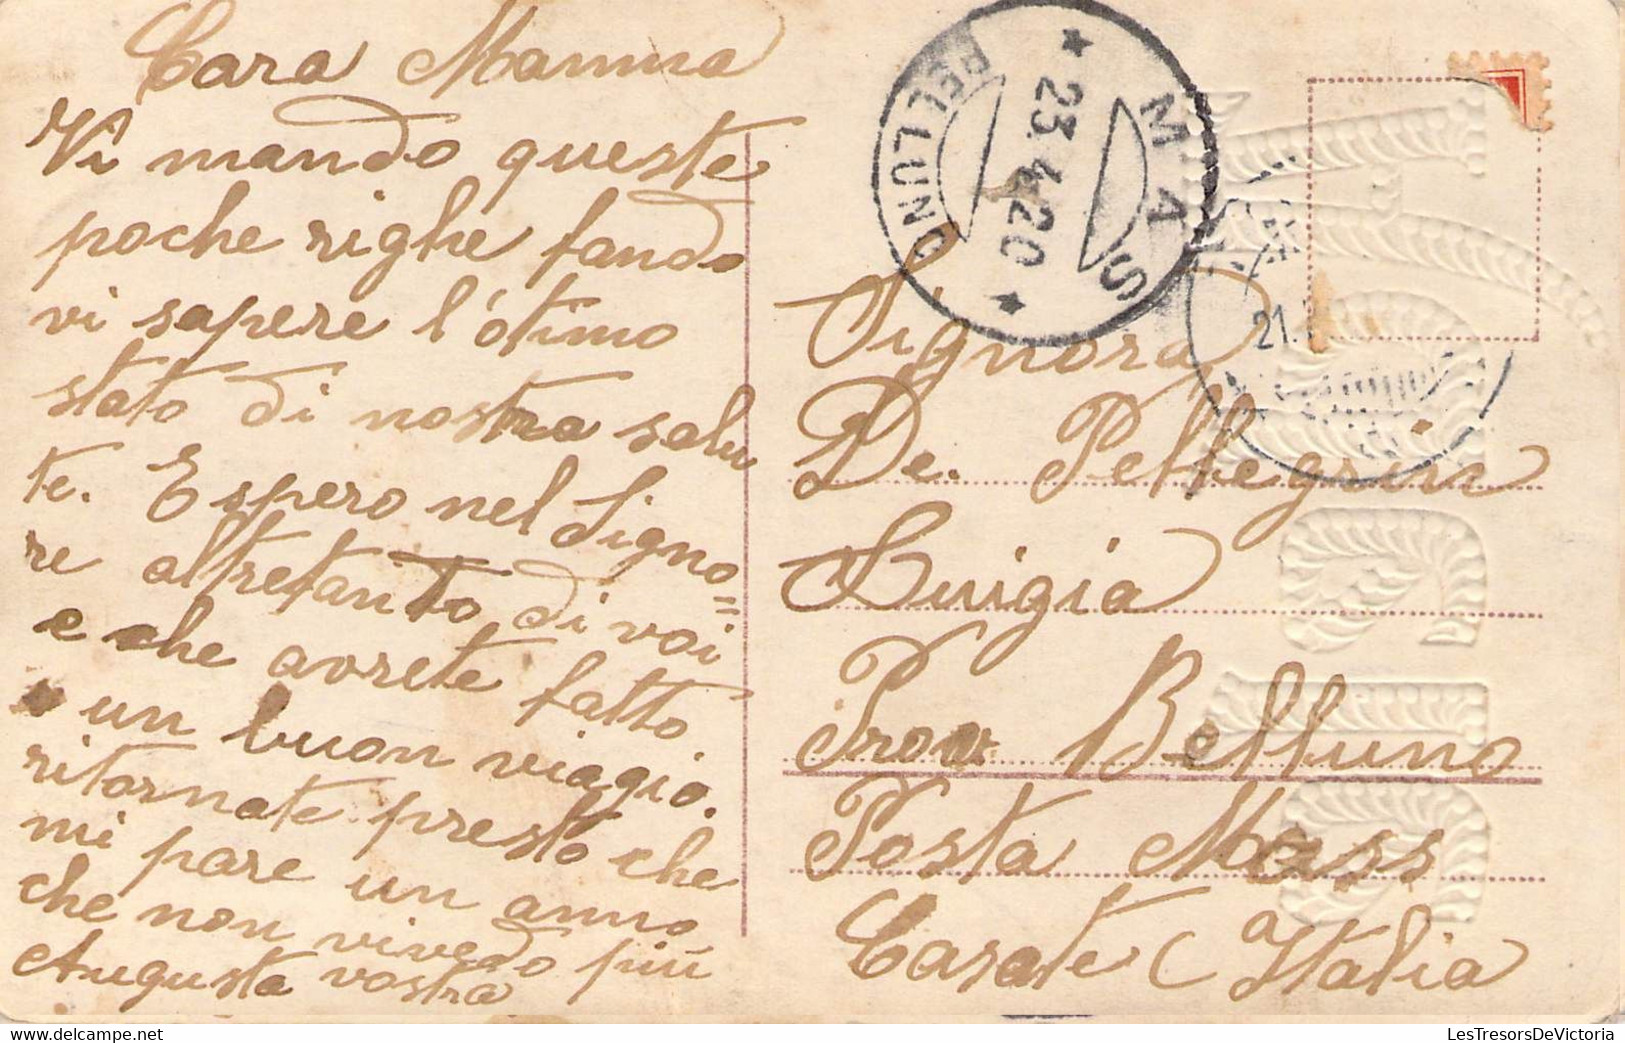 Cara Mamma
Vi mando queste
poche righe fando
vi sapere l'otimo
stato di nostra salu
te. Espero nel Signo=
re altretanto di voi
e che avrete fatto
un buon viagio.
ritornate presto che
mi pare un anno
che non vivedo più
Augusta vostra
MAS
* 23.4.20 *
BELLUNO
21.
Signora
De. Pellegrin
Luigia
Prov Belluno
Posta Mass
Carate (Italia
https://www.delcampe.net
LesTresorsDeVictoria